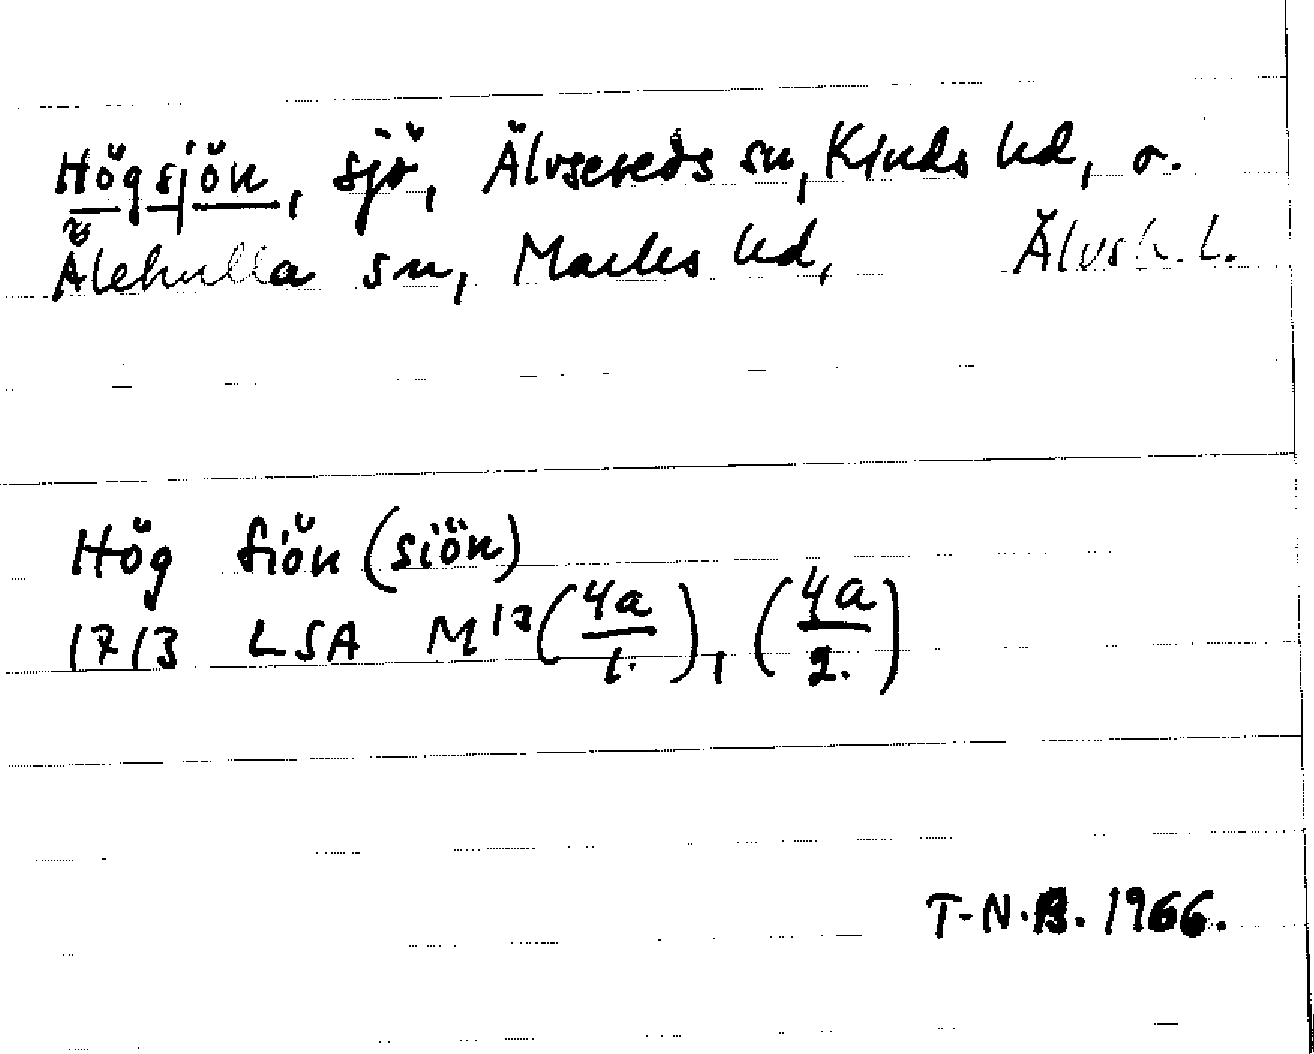 Högsjön, sjö, Älvsereds sn, Kinds hd, o.
Älekulla sn, Marks hd, Älvsb. l.
Hög siön (siön)
1713 LSA M17 (4a/1.), (4a/2.)
T-N.B. 1966.